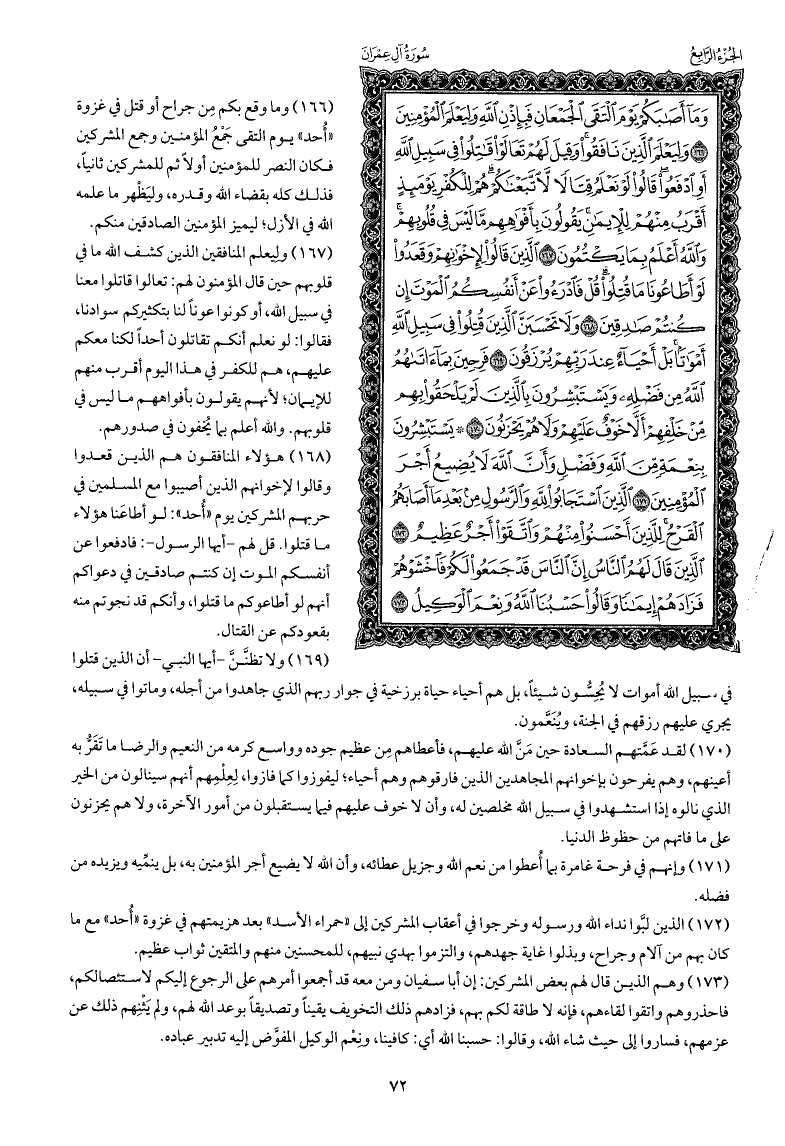 الجزء الرابع
سورة آل عمران
وَمَآ أَصَٰبَكُمْ يَوْمَ ٱلْتَقَى ٱلْجَمْعَانِ فَبِإِذْنِ ٱللَّهِ وَلِيَعْلَمَ ٱلْمُؤْمِنِينَ
١٦٦ وَلِيَعْلَمَ ٱلَّذِينَ نَافَقُوا۟ ۚ وَقِيلَ لَهُمْ تَعَالَوْا۟ قَٰتِلُوا۟ فِى سَبِيلِ ٱللَّهِ
أَوِ ٱدْفَعُوا۟ ۖ قَالُوا۟ لَوْ نَعْلَمُ قِتَالًا لَّٱتَّبَعْنَٰكُمْ ۗ هُمْ لِلْكُفْرِ يَوْمَئِذٍ
أَقْرَبُ مِنْهُمْ لِلْإِيمَٰنِ ۚ يَقُولُونَ بِأَفْوَٰهِهِم مَّا لَيْسَ فِى قُلُوبِهِمْ ۗ
وَٱللَّهُ أَعْلَمُ بِمَا يَكْتُمُونَ ١٦٧ ٱلَّذِينَ قَالُوا۟ لِإِخْوَٰنِهِمْ وَقَعَدُوا۟
لَوْ أَطَاعُونَا مَا قُتِلُوا۟ ۗ قُلْ فَٱدْرَءُوا۟ عَنْ أَنفُسِكُمُ ٱلْمَوْتَ إِن
كُنتُمْ صَٰدِقِينَ ١٦٨ وَلَا تَحْسَبَنَّ ٱلَّذِينَ قُتِلُوا۟ فِى سَبِيلِ ٱللَّهِ
أَمْوَٰتًۢا ۚ بَلْ أَحْيَآءٌ عِندَ رَبِّهِمْ يُرْزَقُونَ ١٦٩ فَرِحِينَ بِمَآ ءَاتَىٰهُمُ
ٱللَّهُ مِن فَضْلِهِۦ وَيَسْتَبْشِرُونَ بِٱلَّذِينَ لَمْ يَلْحَقُوا۟ بِهِم
مِّنْ خَلْفِهِمْ أَلَّا خَوْفٌ عَلَيْهِمْ وَلَا هُمْ يَحْزَنُونَ ١٧٠ ۞ يَسْتَبْشِرُونَ
بِنِعْمَةٍ مِّنَ ٱللَّهِ وَفَضْلٍ وَأَنَّ ٱللَّهَ لَا يُضِيعُ أَجْرَ
ٱلْمُؤْمِنِينَ ١٧١ ٱلَّذِينَ ٱسْتَجَابُوا۟ لِلَّهِ وَٱلرَّسُولِ مِنۢ بَعْدِ مَآ أَصَابَهُمُ
ٱلْقَرْحُ ۚ لِلَّذِينَ أَحْسَنُوا۟ مِنْهُمْ وَٱتَّقَوْا۟ أَجْرٌ عَظِيمٌ ١٧٢
ٱلَّذِينَ قَالَ لَهُمُ ٱلنَّاسُ إِنَّ ٱلنَّاسَ قَدْ جَمَعُوا۟ لَكُمْ فَٱخْشَوْهُمْ
فَزَادَهُمْ إِيمَٰنًا وَقَالُوا۟ حَسْبُنَا ٱللَّهُ وَنِعْمَ ٱلْوَكِيلُ ١٧٣
(١٦٦) وما وقع بكم مِن جراح أو قتل في غزوة
«أُحد» يـوم التقى جَمْعُ المؤمنـين وجمع المشركين
فـكان النصر للمؤمنين أولاً ثم للمشركين ثانياً،
فذلـك كله بقضاء الله وقـدره، وليَظْهر ما علمه
الله في الأزل؛ ليميز المؤمنين الصادقين منكم.
(١٦٧) ولِيعلم المنافقين الذين كشف الله ما في
قلوبهم حين قال المؤمنون لهم: تعالوا قاتلوا معنا
في سبيل الله، أو كونوا عوناً لنا بتكثيركم سوادنا،
فقالوا: لو نعلم أنكم تقاتلون أحداً لكنا معكم
عليهـم، هـم للكفر في هـذا اليوم أقرب منهم
للإيمان؛ لأنهـم يقولـون بأفواههـم مـا ليس في
قلوبهم. والله أعلم بما يُخفون في صدورهم.
(١٦٨) هـؤلاء المنافقـون هـم الذيـن قعـدوا
وقالوا لإخوانهم الذين أصيبوا مع المسـلمين في
حربهـم المشركين يوم «أُحد»: لـو أطاعَنا هؤلاء
مـا قتلوا. قل لهم –أيها الرسول–: فادفعوا عن
أنفسكم الموت إن كنتـم صادقـين في دعواكم
أنهم لو أطاعوكم ما قتلوا، وأنكم قد نجوتم منه
بقعودكم عن القتال.
(١٦٩) ولا تظنَّـنَّ –أيها النبي– أن الذين قتلوا
في سبيل الله أموات لا يُحِسُّون شيئاً، بل هم أحياء حياة برزخية في جوار ربهم الذي جاهدوا من أجله، وماتوا في سبيله،
يجري عليهم رزقهم في الجنة، ويُنَعَّمون.
(١٧٠) لقـد عَمَّتهـم السعادة حين مَنَّ الله عليهـم، فأعطاهم مِن عظيم جوده وواسـع كرمه من النعيم والرضا ما تَقَرُّ به
أعينهم، وهم يفرحون بإخوانهم المجاهدين الذين فارقوهم وهم أحياء؛ ليفوزوا كما فازوا، لِعِلْمِهم أنهم سينالون من الخير
الذي نالوه إذا استشـهدوا في سبيل الله مخلصين له، وأن لا خوف عليهم فيما يستقبلون من أمور الآخرة، ولا هم يحزنون
على ما فاتهم من حظوظ الدنيا.
(١٧١) وإنهـم في فرحـة غامرة بما أُعطوا من نعم الله وجزيل عطائه، وأن الله لا يضيع أجر المؤمنين به، بل ينمِّيه ويزيده من
فضله.
(١٧٢) الذين لبَّوا نداء الله ورسوله وخرجوا في أعقاب المشركين إلى «حمراء الأسد» بعد هزيمتهم في غزوة «أُحد» مع ما
كان بهم من آلام وجراح، وبذلوا غاية جهدهم، والتزموا بهدي نبيهم، للمحسنين منهم والمتقين ثواب عظيم.
(١٧٣) وهـم الذيـن قال لهم بعض المشركين: إن أبا سفيان ومن معه قد أجمعوا أمرهم على الرجوع إليكم لاستئصالكم،
فاحذروهم واتقوا لقاءهم، فإنه لا طاقة لكم بهم، فزادهم ذلك التخويف يقيناً وتصديقاً بوعد الله لهم، ولم يَثْنِهم ذلك عن
عزمهم، فساروا إلى حيث شاء الله، وقالوا: حسبنا الله أي: كافينا، ونِعْم الوكيل المفوَّض إليه تدبير عباده.
٧٢